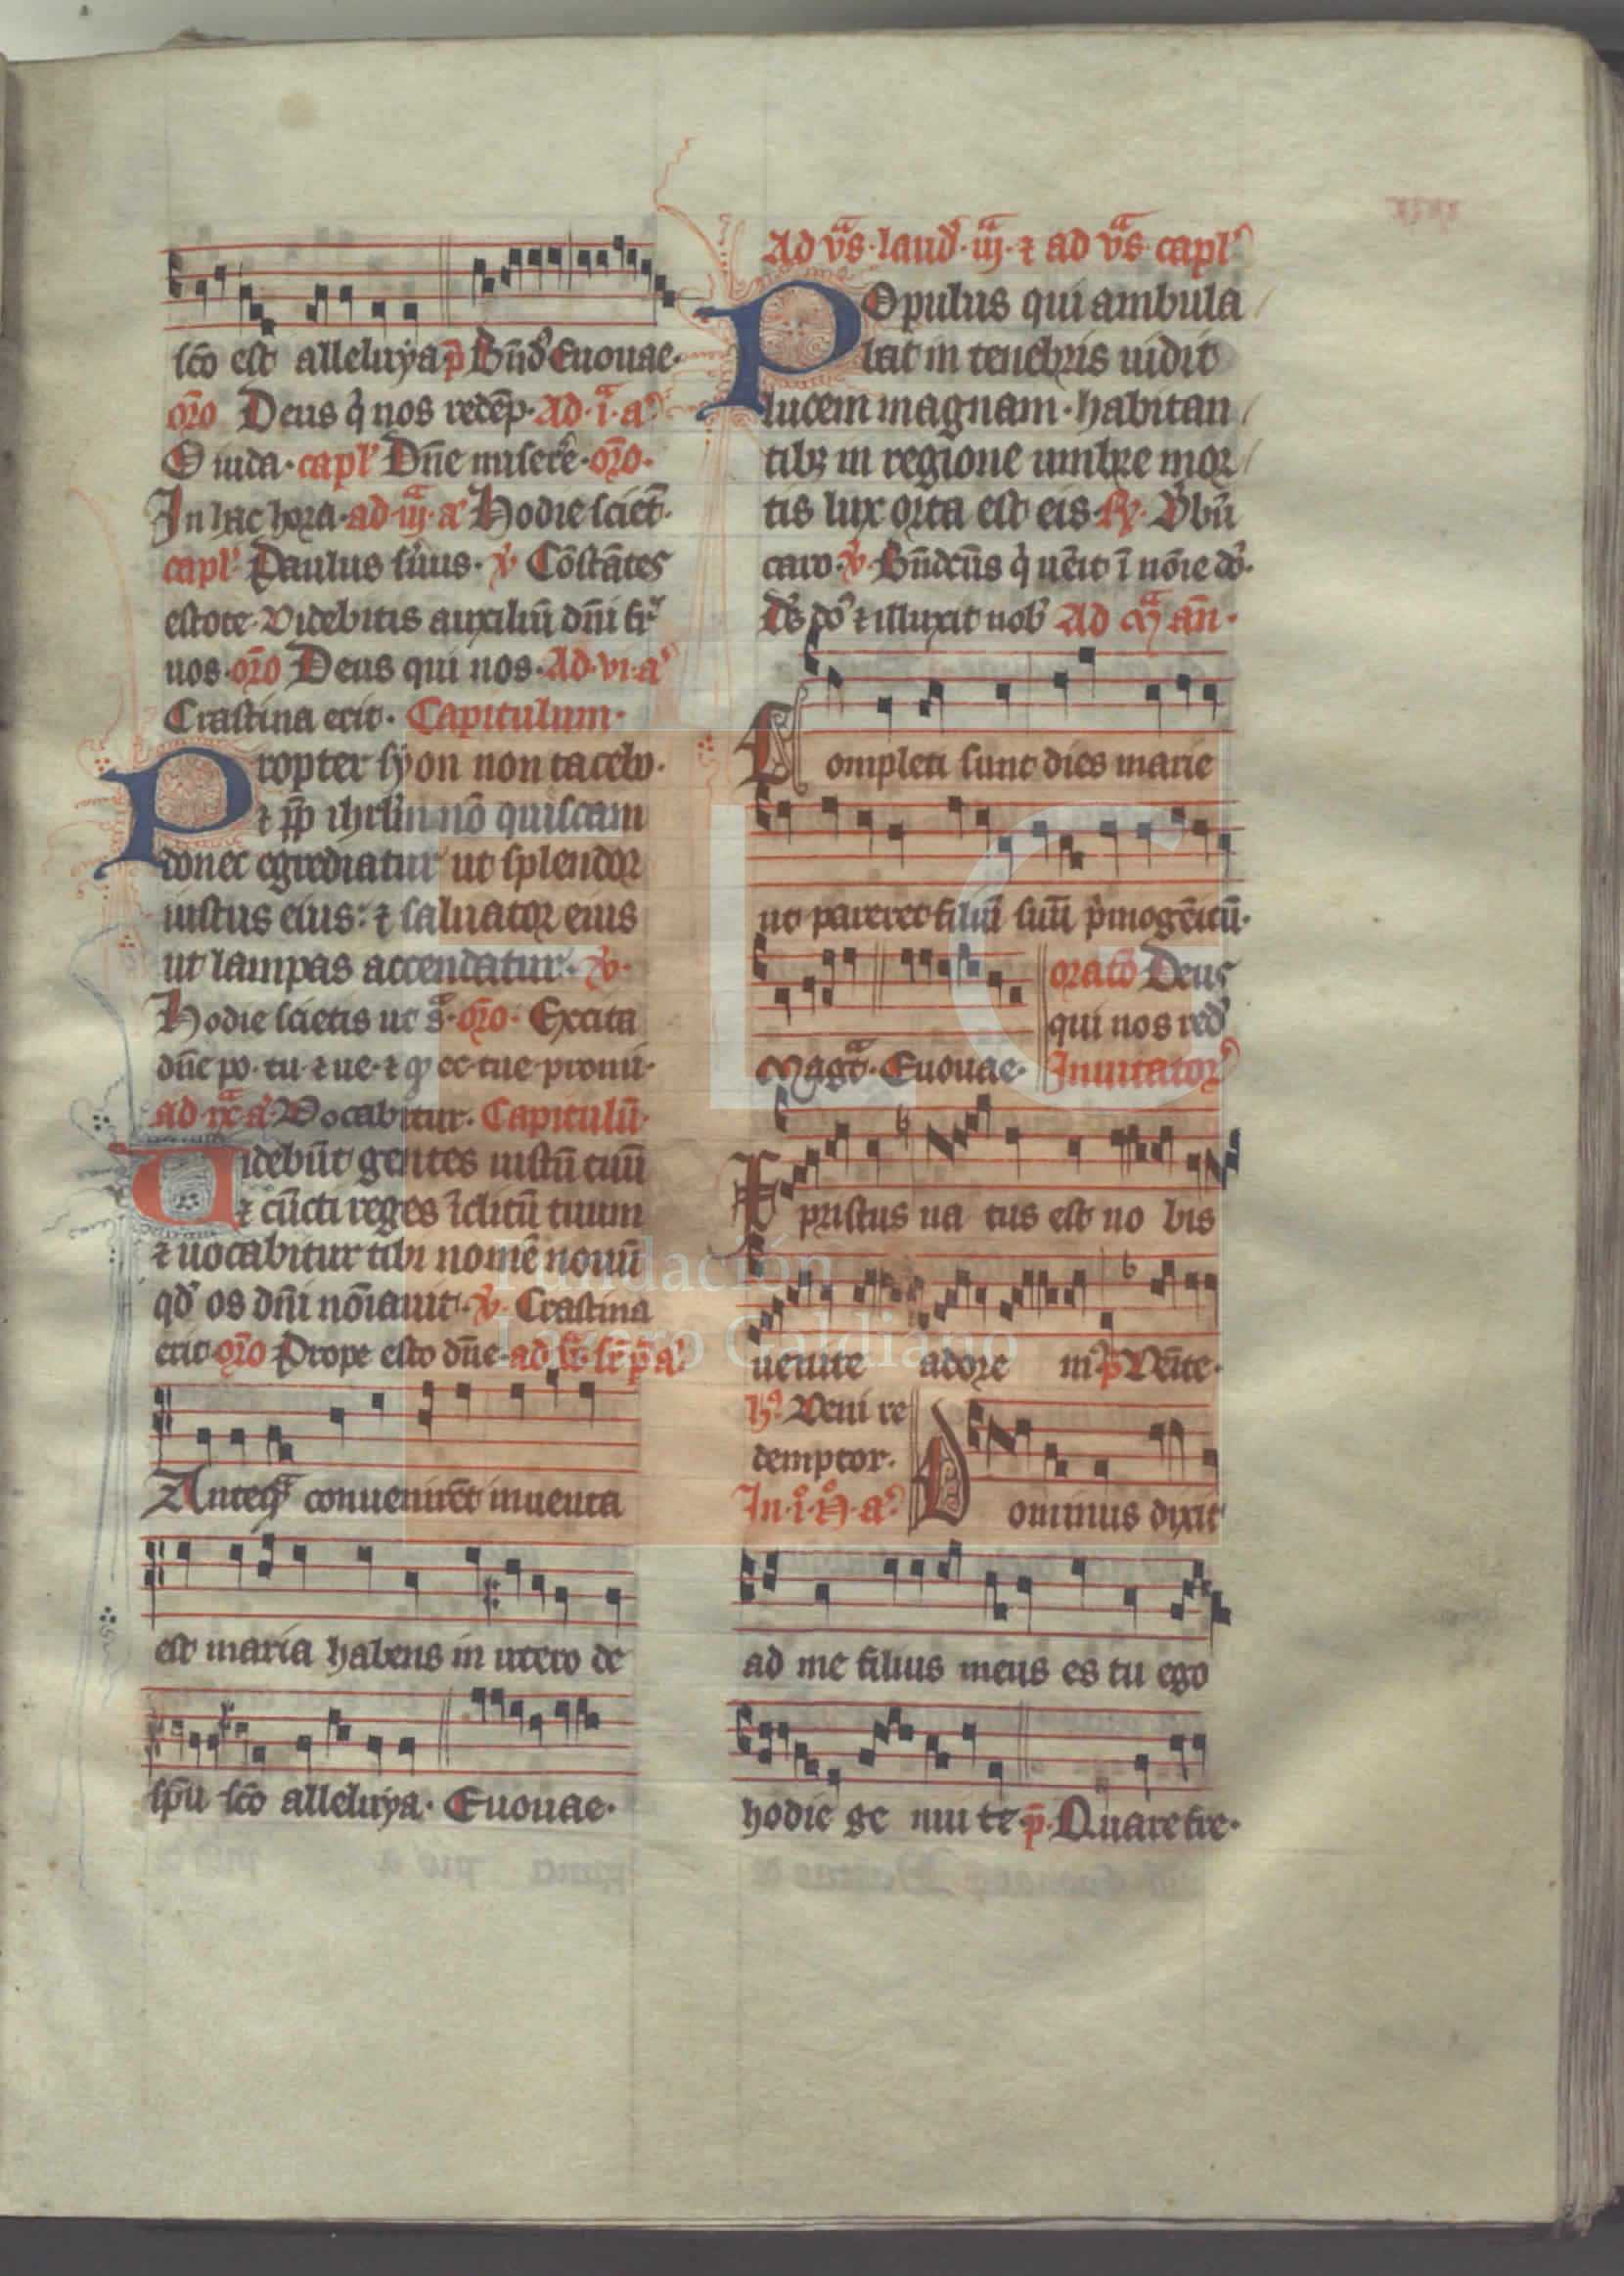 sco est alleluya p̄ Bn̄d Euouae.
or̄o Deus q̇ nos redēp. Ad .i.ᵃ a᾽
O iuda. capl᾽ Dn̄e miserē. or̄o.
In hac hora. ad .iij.ᵃ a᾽ Hodie sciet̄.
capl᾽ Paulus s̄uus. v̄. Cōstātes
estote. Videbitis auxiliū dn̄i sr̄
uos. or̄o Deus qui nos. Ad .vi. a᾽
Crastina erit. Capitulum.
Propter syon non tacebo.
⁊ pp̄ ihrl̄m nō quiescam
donec egrediatur ut splendor
iustus eius: ⁊ saluator eius
ut lampas accendatur. v̄.
Hodie scietis ut s̊. or̄o. Excita
dn̄e po. tu. ⁊ ue. ⁊ ec. tue promi.
ad ix.ᵃ a᾽ Vocabitur. Capitulū.
Uidebūt gentes iustū tuū
⁊ cūcti reges īclitū tuum
⁊ uocabitur tibi nomē nouū
qd̄ os dn̄i nōiauit. v̄. Crastina
erit. or̄o Prope esto dn̄e. ad a᾽
Anteqᵃ conuenirēt inuenta
est maria habens in utero de
sp̄u sc̄o alleluya. Euouae.
Ad v̄ᵃs. laud. iij.ᵃ ⁊ ad v̄ᵃs capl᾽
Populus qui ambula
lat in tenebris uidit
lucem magnam. habitan
tibꝫ in regione umbre mor
tis lux orta est eis. ℟. Vbū
caro. v̄. Bn̄dc̄us q̇ uēit ī nōie do᾽.
Ds̄ do᾽ ⁊ illuxit nob᾽ Ad Mᵃ an̄.
Completi sunt dies marie
ut pareret filiū suū ṗmogēitū.
oratō Deus
qui nos red᾽
Magt̄ᵃ. Euouae. Inuitator᾽
Xpristus na tus est no bis
uenite adore m᾽ p̄ Vēite.
h᾽ Veni re
demptor.
In .i.° N.° a᾽ Dominus dixit
ad me filius meus es tu ego
hodie ge nui te p̄. Quare fre.
Fundación
Lázaro Galdiano